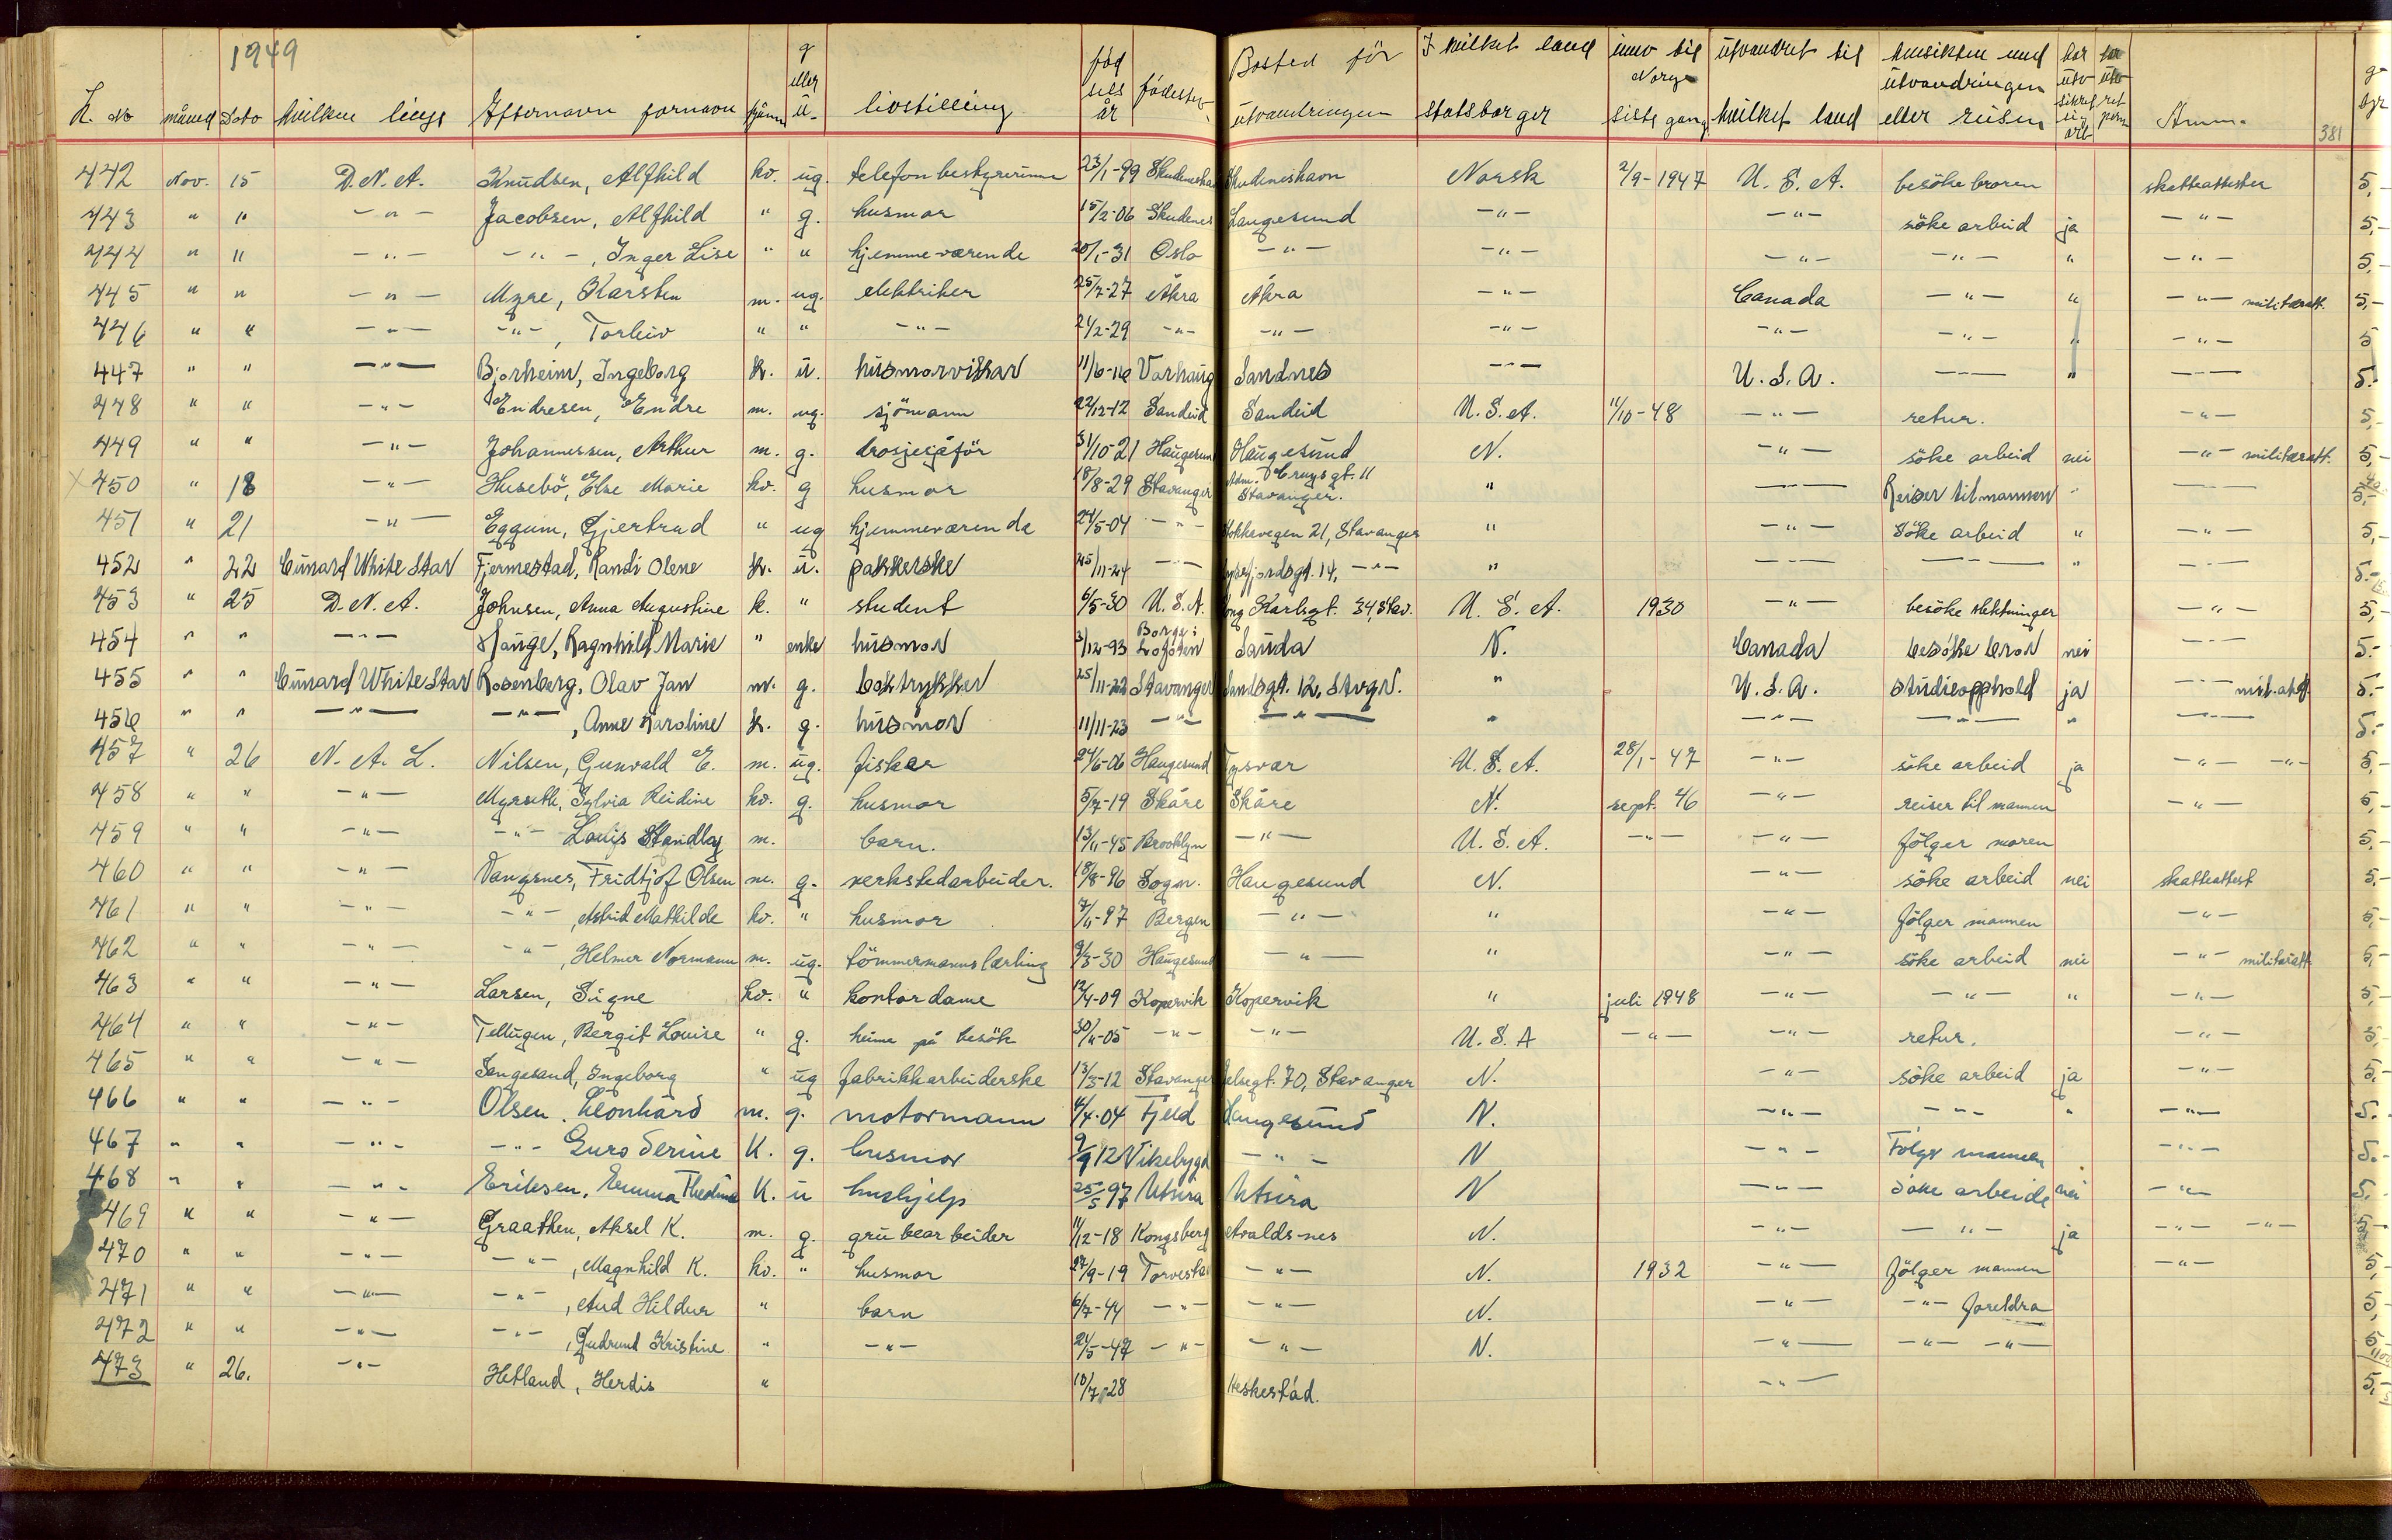 1949
K. no måned Dato hvilken linje Efternavn fornavn kjønn g eller u. livstilling fød sels år fødested Bosted før utvandringen I hvilket land statsborger innv til Norge siste gang utvandret til hvilket land hensikten med utvandringen eller reisen har utv sikret sig arb Anm. 381
442 Nov. 15 D.N.A. Knudsen, Alfhild kv. ug. telefonbestyrerinne 23/1-99 Skudeneshavn Norsk 2/9-1947 U.S.A. besöke broren skatteattester 5,-
443 " " -"- Jacobsen, Alfhild " g. husmor 15/2-06 Skudenes Langesund -"- -"- söke arbeid ja -"- 5,-
444 " " -"- -"-, Inger Lise " " hjemmeværende 20/1-31 Oslo -"- -"- -"- -"- " -"- 5,-
445 " " -"- Myre, Karsten m. ug. elektriker 25/7-27 Åkra Åkra -"- Canada -"- " -"- militæratt. 5,-
446 " " -"- -"-, Torleiv " " -"- 21/2-29 -"- -"- -"- -"- -"- " -"- 5
447 " " -"- Bjorheim, Ingeborg k. u. husmorvikar 11/6-16 Varhaug Sandnes -"- U.S.A. -"- " -"- 5.-
448 " " -"- Endresen, Endre m. ug. sjömann 22/12-12 Sandeid Sandeid U.S.A. 11/10-48 -"- retur. -"- 5,-
449 " " -"- Johannessen, Arthur m. g. drosjesjåför 31/10-21 Haugesund Haugesund N. -"- söke arbeid nei -"- militæratt. 5,-
x 450 " 18 -"- Husebö, Else Marie kv. g husmor 18/8-29 Stavanger Adm. Cruysgt. 11 Stavanger. " -"- Reiser til mannen " -"- 5,-
451 " 21 -"- Eggum, Gjertrud " ug hjemmeværende 24/5-04 -"- Stokkavegen 21, Stavanger " -"- Söke arbeid " -"- 5,-
452 " 22 Cunard White Star Fjermestad, Randi Olene k. u. pakkerske 25/11-24 -"- Lysefjordsgt. 14, -"- " -"- -"- " -"- 5.-
453 " 25 D.N.A. Johnsen, Anna Augustine k. " student 6/5-30 U.S.A. Kong Karlsgt. 34, Stav. U.S.A. 1930 -"- besöke slektninger -"- 5,-
454 " " -"- Hauge, Ragnhild Marie " enke husmor 3/12-93 Borge i Lofoten Sauda N. Canada besöke bror nei -"- 5.-
455 " " Cunard White Star Rosenberg, Olav Jan m. g. boktrykker 25/11-22 Stavanger Sandsgt. 12, Stvgr. " U.S.A. studieopphold ja -"- mil. att. 5.-
456 " " -"- -"-, Anne Karoline k. g. husmor 11/11-23 -"- -"- " -"- -"- " -"- 5.-
457 " 26 N.A.L. Nilsen, Gunvald E. m. ug. fisker 24/6-06 Haugesund Tysvær U.S.A. 28/1-47 -"- söke arbeid ja -"- -"- 5,-
458 " " -"- Myrseth, Sylvia Reidine kv. g. husmor 5/7-19 Skåre Skåre N. sept. 46 -"- reiser til mannen -"- 5,-
459 " " -"- -"- Louis Standley m. barn. 13/11-45 Brooklyn -"- U.S.A. -"- -"- fölger moren 5,-
460 " " -"- Vangsnes, Fridtjof Olsen m. g. verkstedarbeider. 18/8-96 Sogn. Haugesund N. -"- söke arbeid nei skatteattest 5,-
461 " " -"- -"-, Astrid Mathilde kv. " husmor 7/11-97 Bergen -"- " -"- fölger mannen -"- 5,-
462 " " -"- -"-, Helmer Normann m. ug. tömmermannslærling 9/3-30 Haugesund -"- " -"- söke arbeid nei -"- militæratt 5,-
463 " " -"- Larsen, Signe kv. " kontordame 12/4-09 Kopervik Kopervik " juli 1948 -"- -"- " -"- 5,-
464 " " -"- Tellugen, Bergit Louise " g. heime på besök 30/11-05 -"- -"- U.S.A -"- -"- retur. -"- 5,-
465 " " -"- Sangesand, Ingeborg " ug fabrikkarbeiderske 13/3-12 Stavanger Jelsegt. 70, Stavanger N. -"- söke arbeid ja -"- 5,-
466 " " -"- Olsen. Leonhard m. g. motormann 4/4-04 Fjeld Haugesund N. -"- -"- " -"- 5.-
467 " " -"- -"- Guro Serine K. g. husmor 9/9 12 Vikebygd -"- N -"- Følge mannen -"- 5.-
468 " " -"- Eriksen, Emma Thedine K. u hushjelp 25/5 97 Utsira Utsira N -"- Søke arbeide nei -"- 5.-
469 " " -"- Graathen, Aksel K. m. g. grubearbeider 11/12-18 Kongsberg Avaldsnes N. -"- -"- ja -"- -"- 5,-
470 " " -"- -"-, Magnhild K. kv. " husmor 27/9-19 Torvestad -"- N. 1932 -"- fölger mannen -"- 5,-
471 " " -"- -"-, Aud Hildur " barn 6/7-44 -"- -"- N. -"- -"- foreldra 5,-
472 " " -"- -"-, Gudrund Kristine " -"- 24/5-47 -"- -"- N. -"- -"- -"- 5,-
473 " 26. -"- Hetland, Herdis " 18/7-28 Heskestad. -"- 5,-